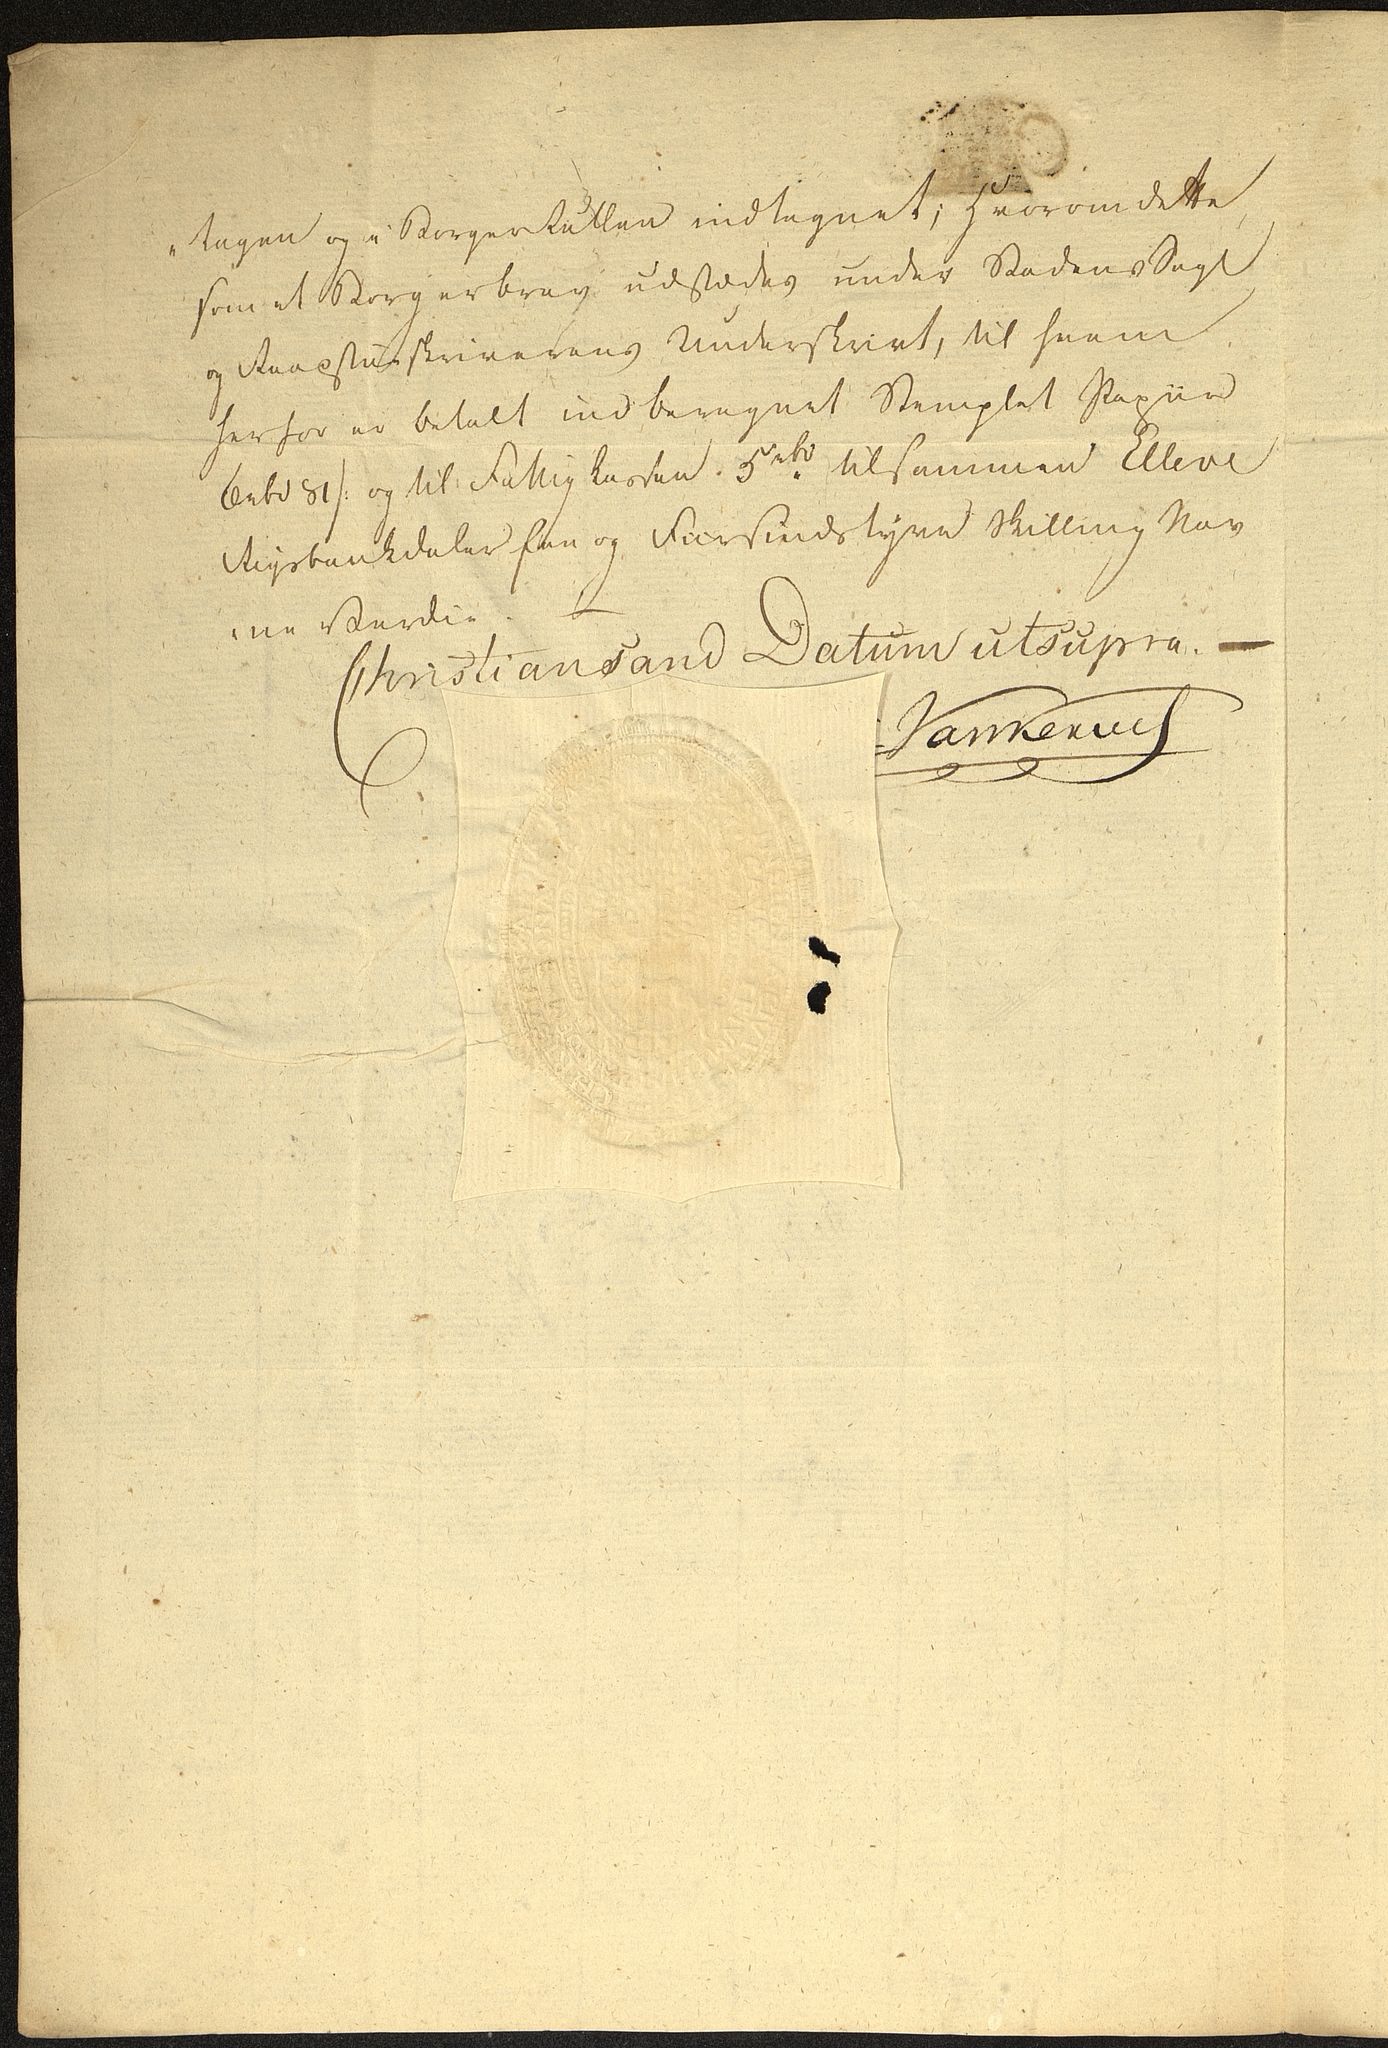 „tagen og i Borger Rullen indtegnet; Hvorom dette,
som et Borgerbrev udstædes under Stadens Segl
og Raadstueskriverens Underskrivt, til hvem
herfor er betalt indberegnet Stemplet Papiir
6rbd 81/: og til Fattig Kassen. 5rbd tilsammen Elleve
Rigsbankdaler Een og Fiirsindstyve Skilling Nav
„ne Værdie.
Christiansand Datum utsupra. —